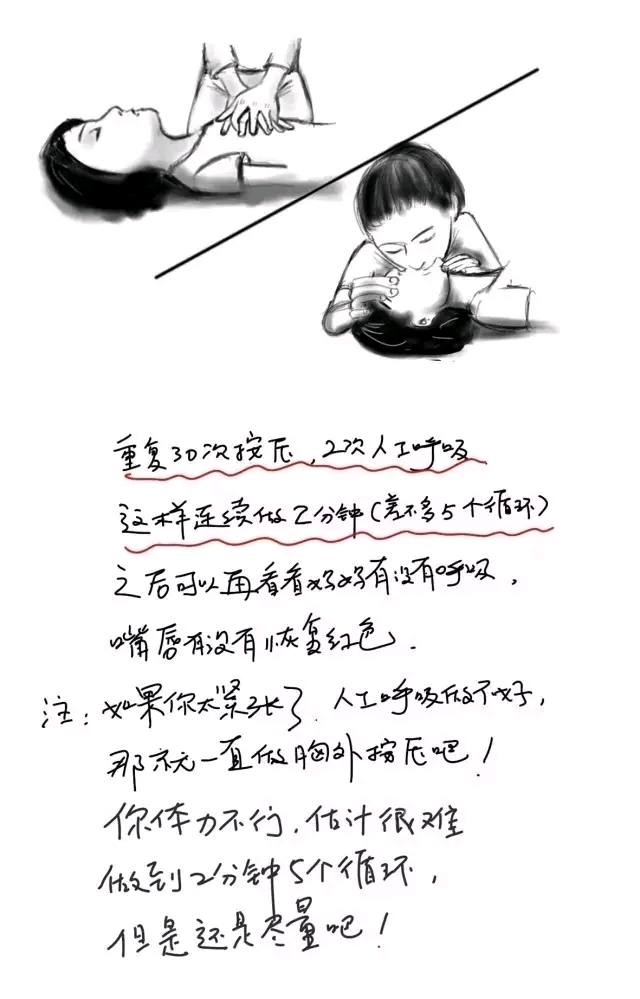 重复30次按压，2次人工呼吸
这样连续做2分钟(差不多5个循环)
之后可以再看看妈妈有没有呼吸，
嘴唇有没有恢复红色.
注：如果你太紧张了.人工呼吸做不好，
那就一直做胸外按压吧！
你体力不行，估计很难
做到2分钟5个循环，
但是还是尽量吧！